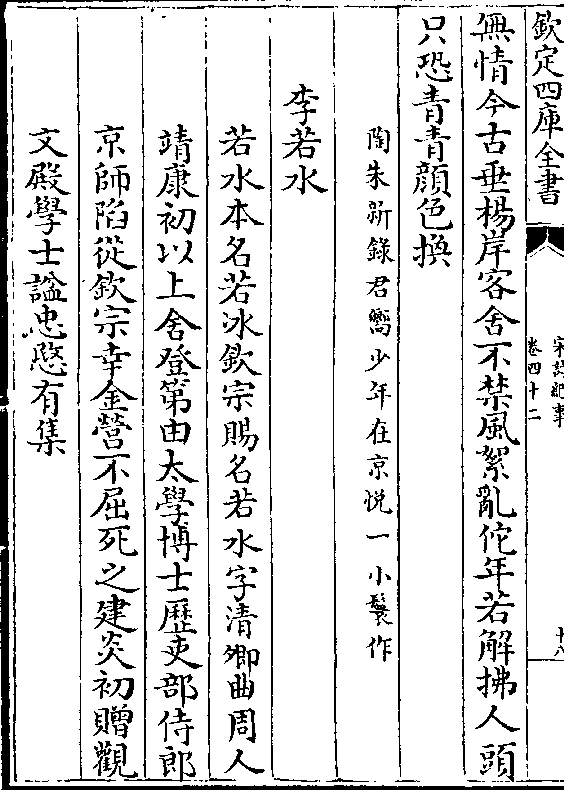 欽定四庫全書
宋詩紀事
卷四十二
十八
無情今古垂楊岸客舍不禁風絮亂佗年若解拂人頭
只恐青青顔色換
陶朱新錄君嚮少年在京悅一小鬟作
李若水
若水本名若冰欽宗賜名若水字清卿曲周人
靖康初以上舍登第由太學博士歷吏部侍郎
京師陷從欽宗幸金營不屈死之建炎初贈觀
文殿學士謚忠愍有集